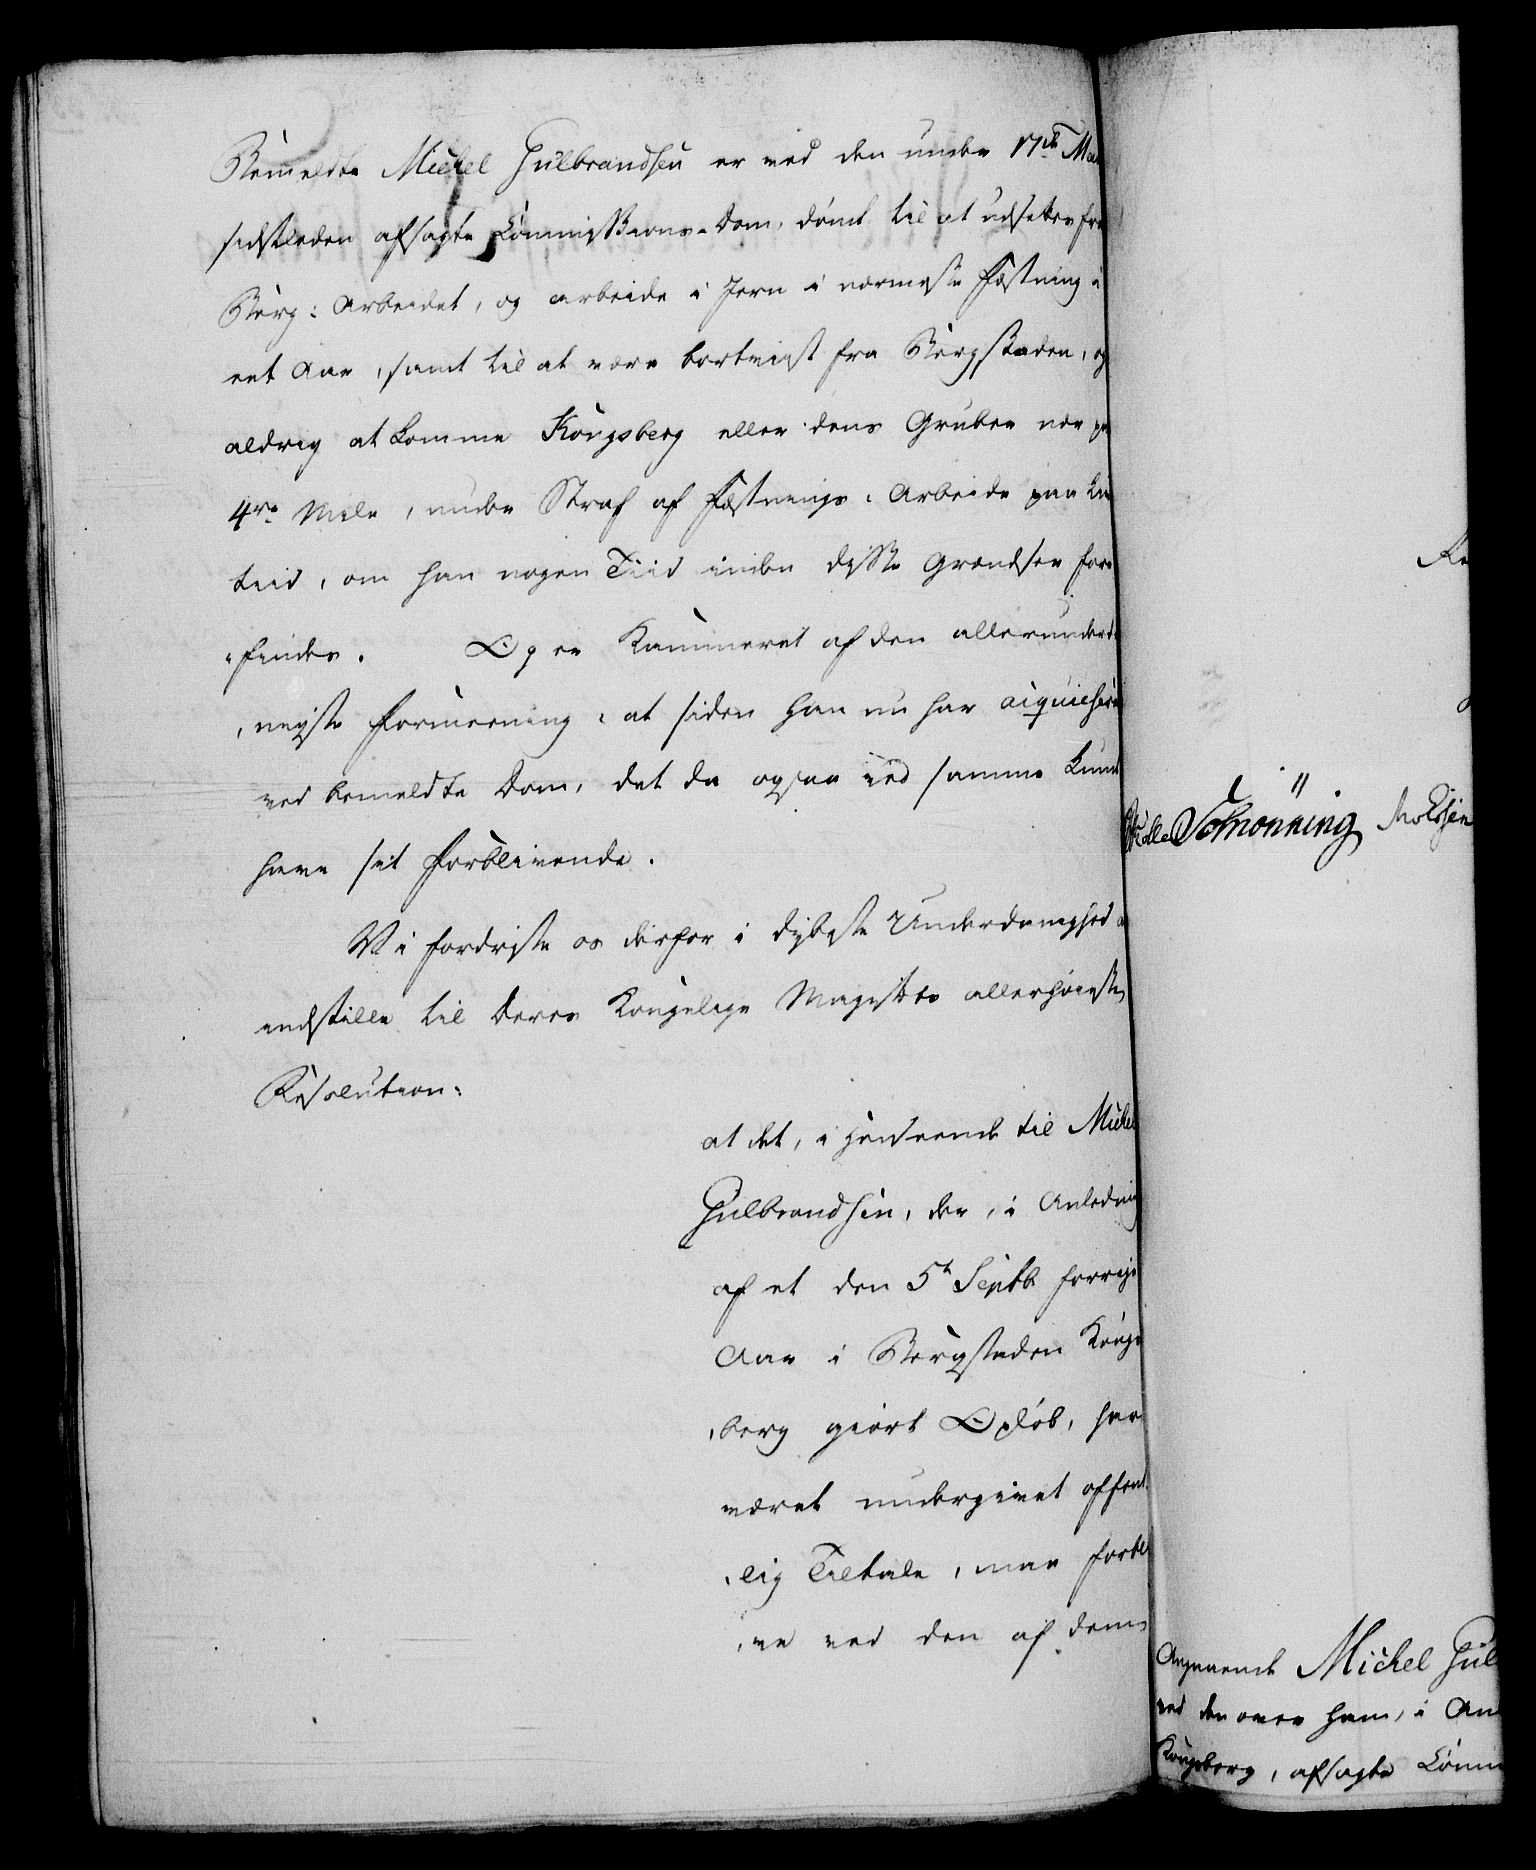 Bemeldte Michel Gulbrandsen er ved den under 17de Mai
sidstleden afsagte Commissions-Dom, dømt til at udsettes fra
Berg: Arbeidet, og arbeide i Jern i nærmeste Fæstning i
eet Aar, samt til at være bortviist fra Bergstaden, og
aldrig at komme Kongsberg eller dens Gruber nær paa
4re Mile, under Straf af Fæstnings: Arbeide paa Livs
tiid, om han nogen Tiid inden disse Grændser fore
findes. Og er Kammeret af den allerunderd
nigste Formeening, at siden han nu har acquiescere
ved bemeldte Dom, det da ogsaa ved samme kunde
have sit Forblivende.
Vi fordriste os derfor i dybeste Underdanighed at
indstille til Deres Kongelige Majestets allerhøieste
Resolution:
at det, i Henseende til Michel
Gulbrandsen, der, i Anledning
af et den 5te Septb: forrige
Aar i Bergstaden Kongs
berg giort Opløb, har
været undergivet offent
lig Tiltale, maa forbli
ve ved den af dem
Schønning
Angaaende Michel Gul
ved den over ham, i An
Kongsberg, afsagte Comm